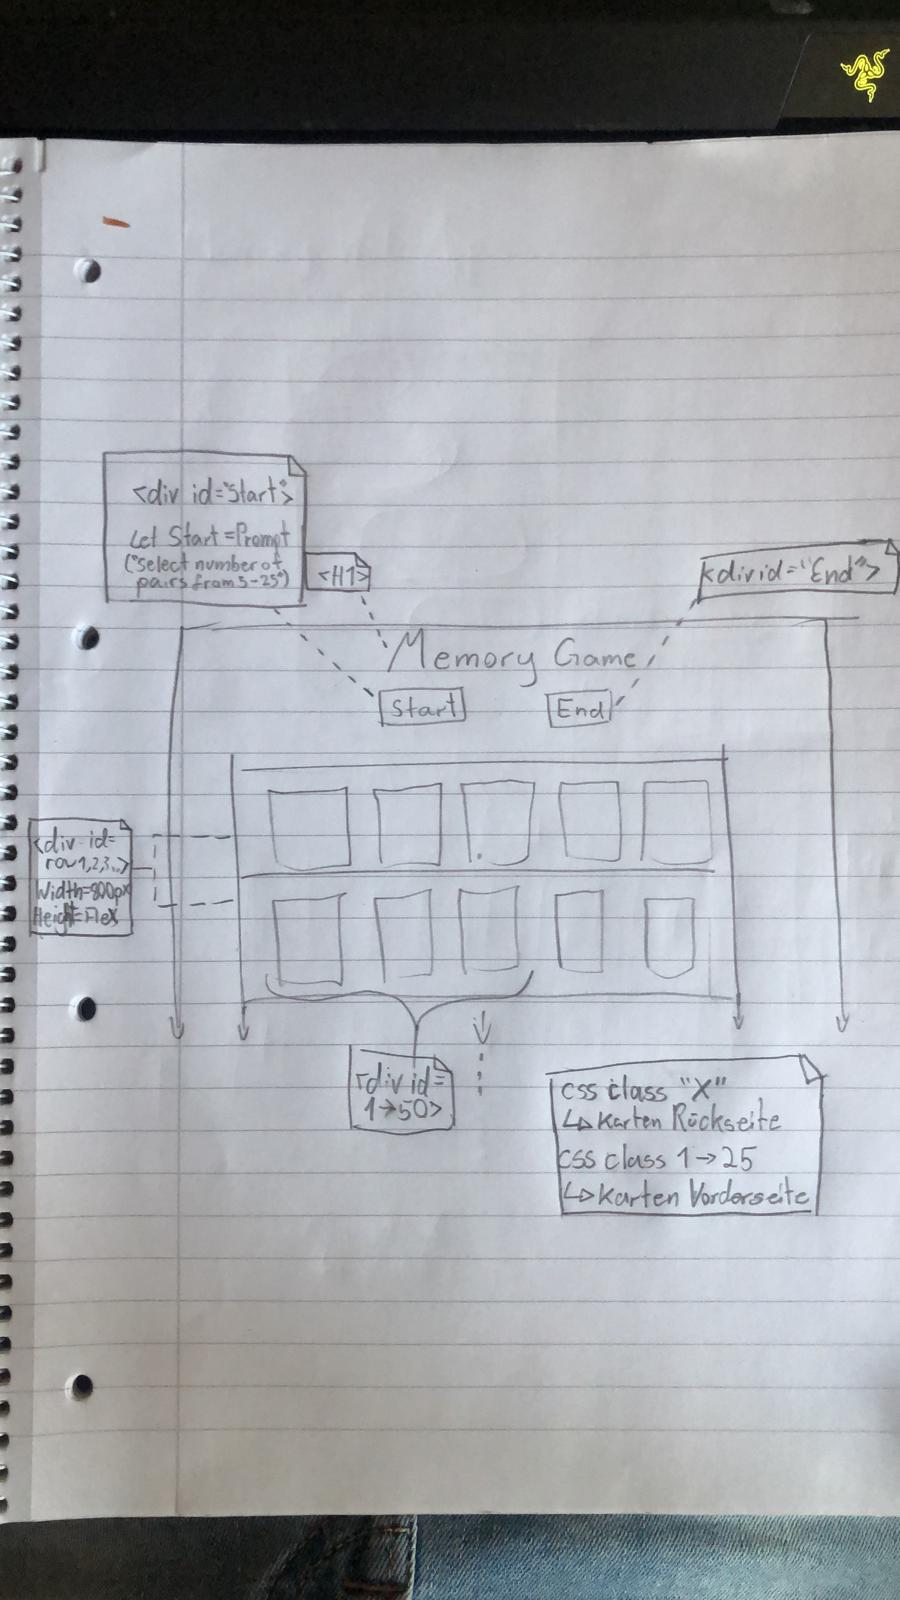 <div id="Start">
Let Start=Prompt
("select number of
pairs from 5-25")
<H1>
<div id="End">
Memory Game
Start
End
<div id=
row1,2,3..>
Width=800px
Height=Flex
<div id=
1→50>
css class "X"
↳ Karten Rückseite
css class 1→25
↳ Karten Vorderseite